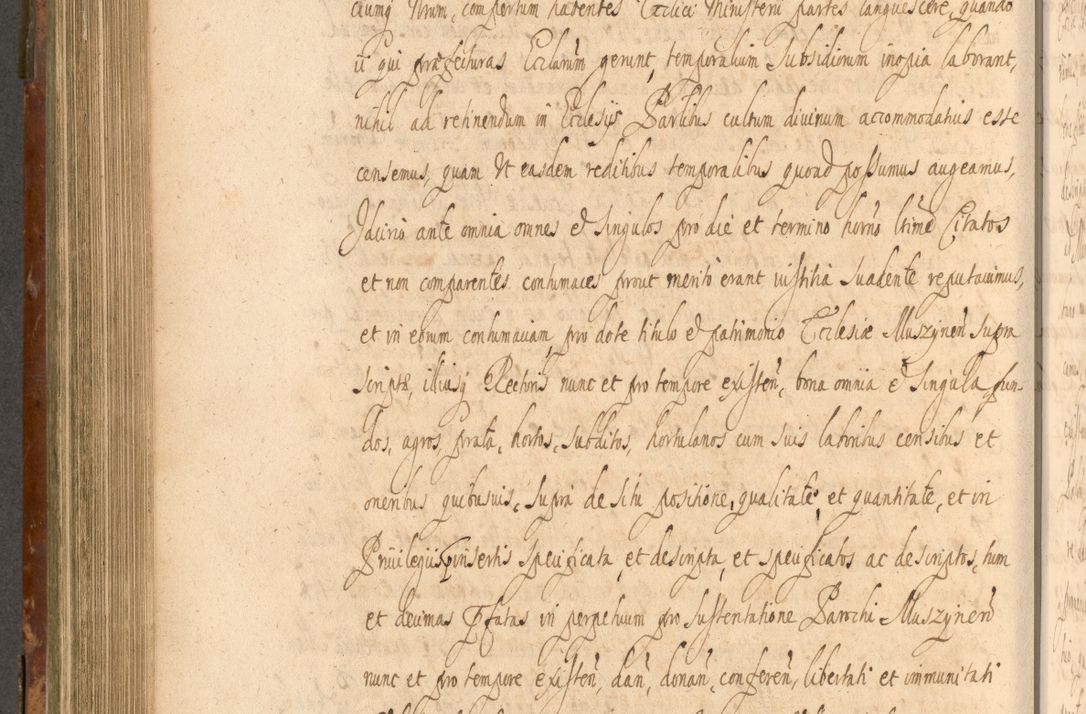 ciumq Nrum, compertum habentes Ecclici Ministerii partes languescere, quando
ii qui præfecturas Ecclarũm gerunt, temporalium Subsidiorum inopia laborant,
nihil ad retinendum in Ecclesijs Partibus cultum divinum accommodatius este
censemus, quam Ut easdem reditibus temporalibus quoad possumus augeamus,
Idcirco ante omnia omnes et Singulos pro die et termino horno ltimé Citatos
et non comparentes contumaces prout meriti erant iustitia Suadente reputavimus,
et in eorum contumaciam, pro dote titulo et patrimonio Ecclesiæ Muszÿnen̄ Supra
scriptæ, illiusq Rectoris nunc et pro tempore existen̄, bona omnia et Singula fun-
dos, agros, prata, hortos, Subditos, hortulanos cum suis laboribus censibus et
oneribus quibusvis, Supra de situ positione, qualitate, et quantitate, et in
Privilegijs insertis specificata, et descripta, et specificatos ac descriptos, tum
et decimas Pfatas in perpetuum pro sustentatione Parochi Muszÿnen̄
nunc et pro tempore Existen̄, dan̄, donan̄, conferen̄, libertati et immunitati